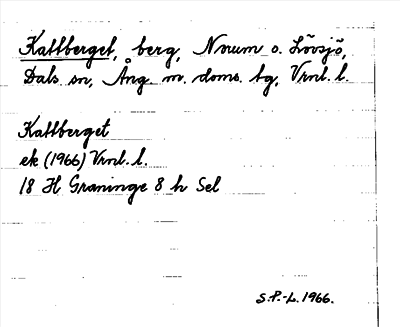 Kattberget, berg, Norum o. Lövsjö,
Dals sn, Ång. m. doms. tg, Vrnl. l.
Kattberget
ek (1966) Vrnl. l.
18 H Graninge 8 h Sel
S.P.-L. 1966.